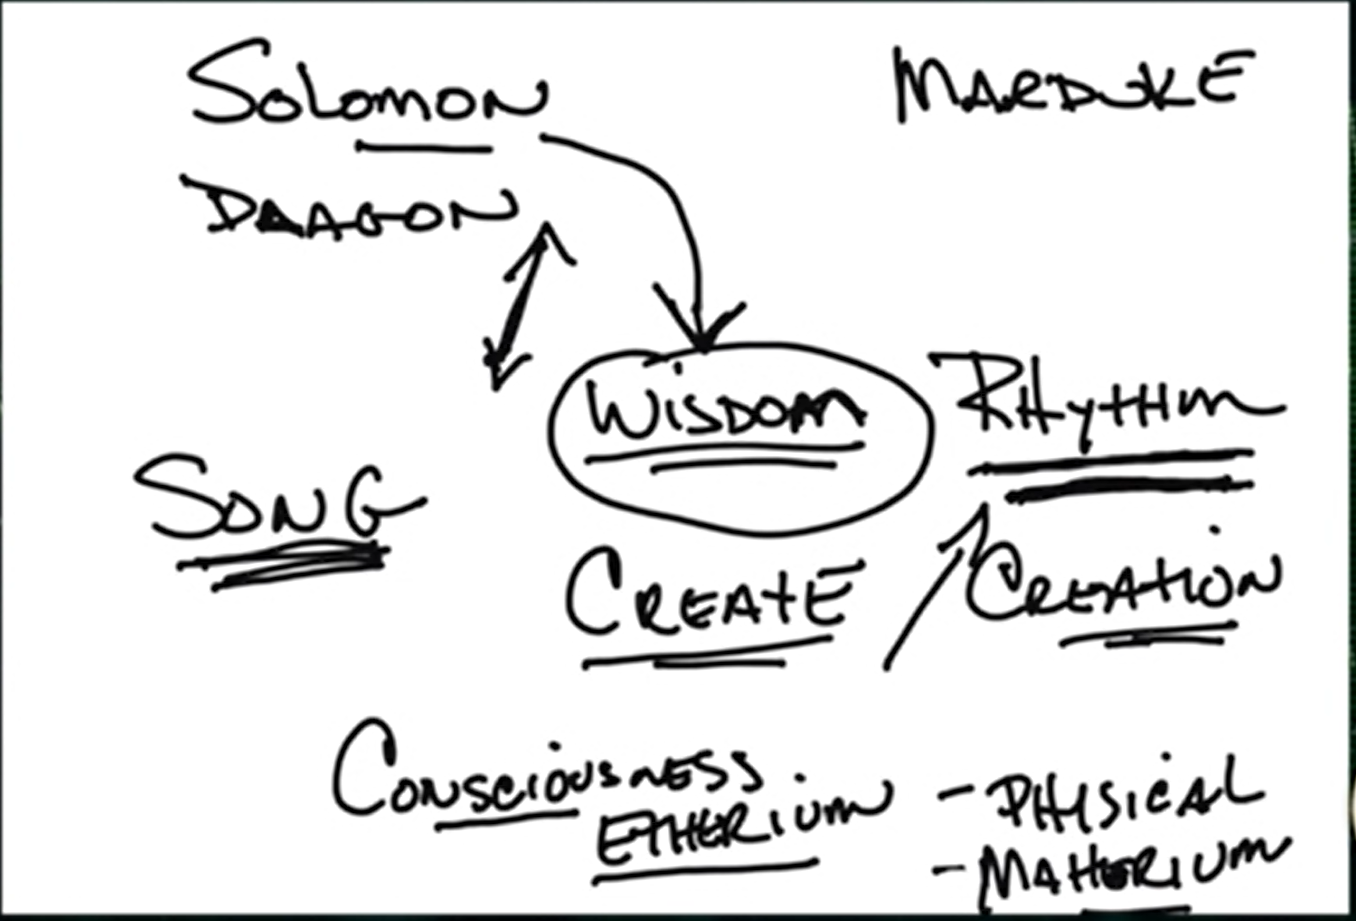 SOLOMON
MARDUKE
DRAGON
WISDOM
RHYTHM
SONG
CREATE
CREATION
CONSCIOUSNESS
ETHERIUM
- PHYSICAL
- MATTERIUM